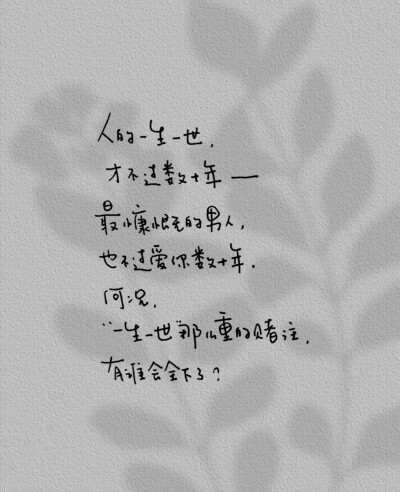 人的一生一世，
才不过数十年——
最慷慨的男人，
也不过爱你数十年．
何况，
“一生一世”那么重的赌注，
有谁会全下了？